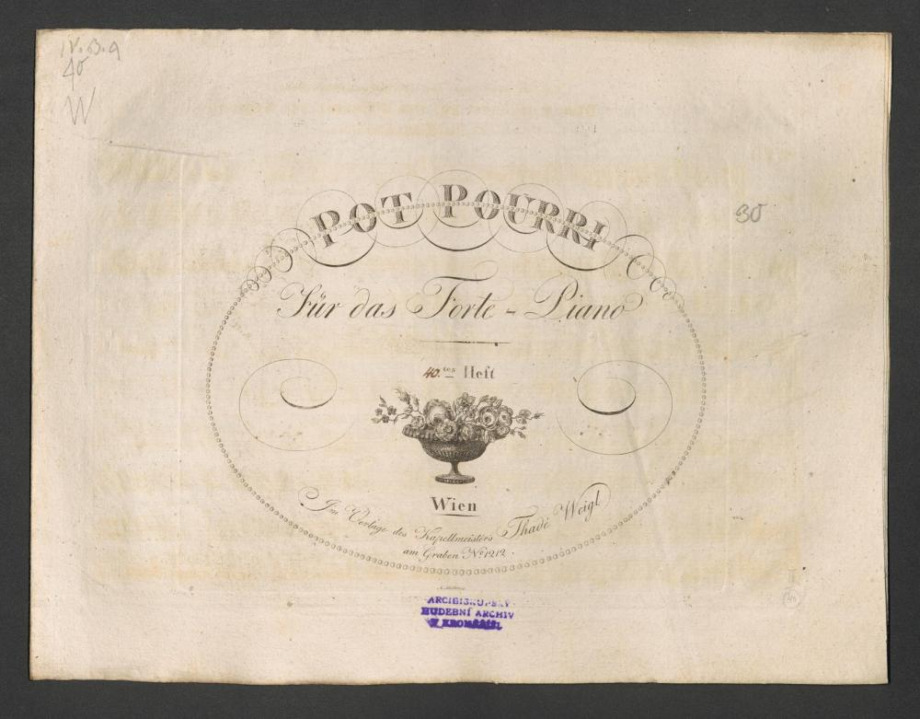 IV.B.9
40
W
POT POURRI
30
Für das Forte-Piano
40.tes Heft
Wien
Im Verlage des Kapellmeisters Thadé Weigl
am Graben No. 1212.
ARCIBISKUPSKÝ
HUDEBNÍ ARCHIV
V KROMĚŘÍŽI